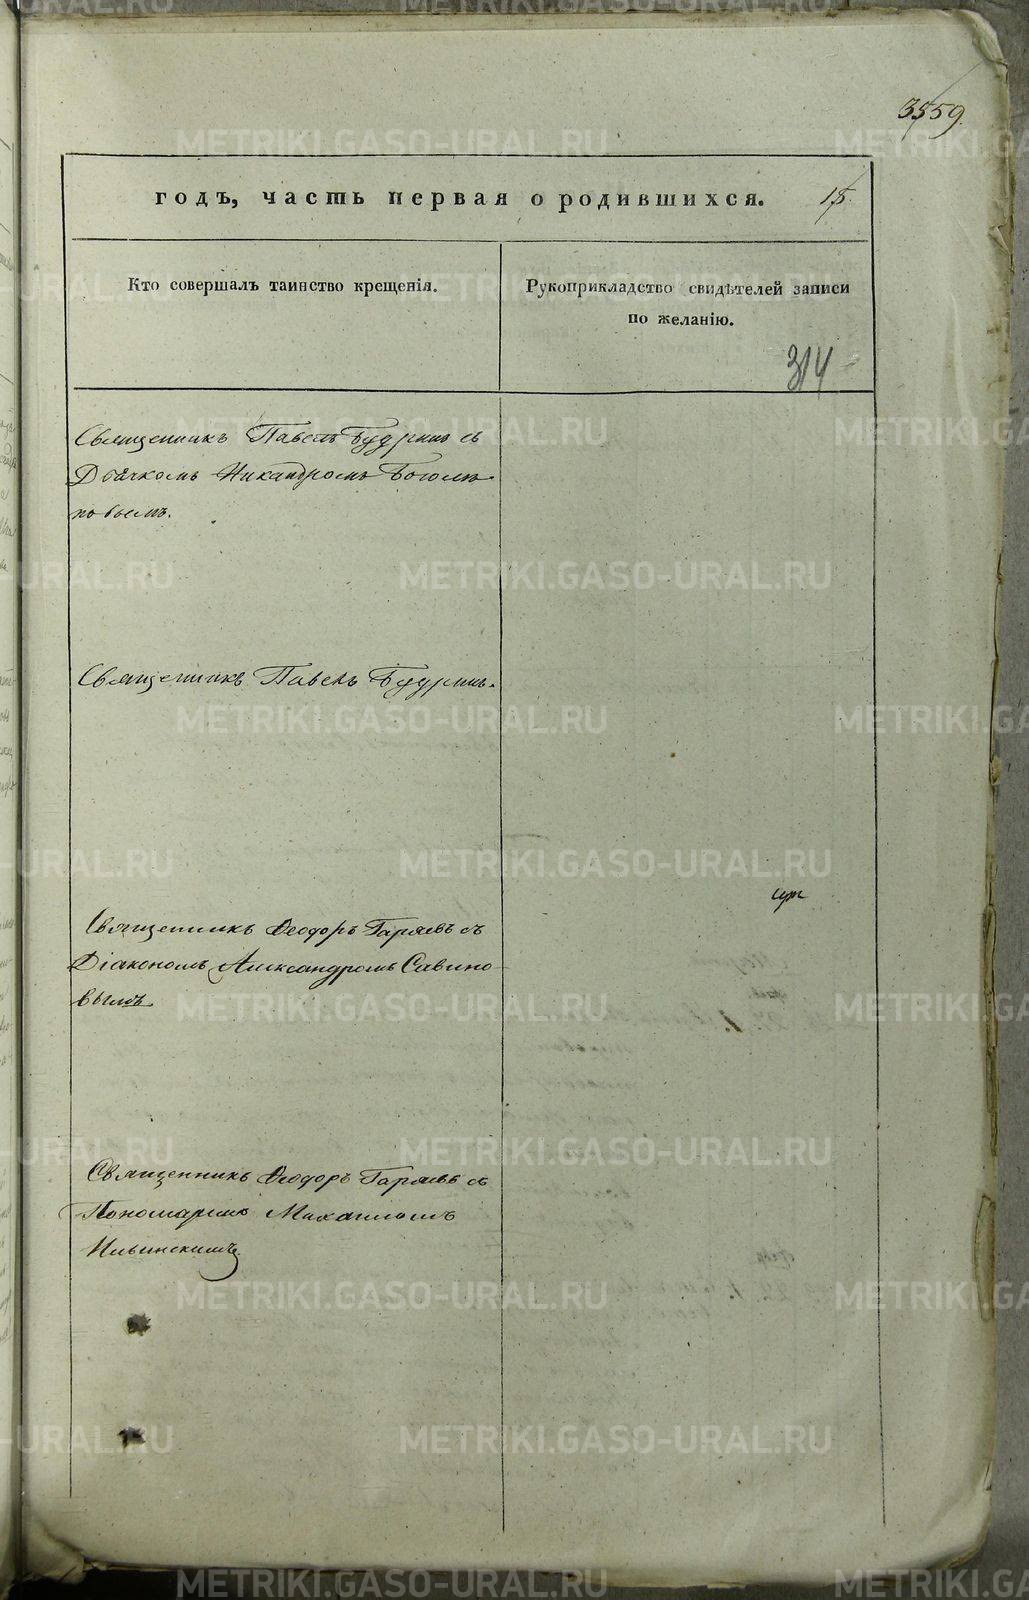 3559.
годъ, часть первая о родившихся. 15
Кто совершалъ таинство крещенія.
Рукоприкладство свидѣтелей записи
по желанію.
314
Священникъ Павелъ Будринъ съ
Дьячкомъ Никандромъ Боголѣ
повымъ.
Священникъ Павелъ Будринъ.
Священникъ Ѳеодоръ Гаряевъ съ
Діакономъ Александромъ Савино
вымъ
Священникъ Ѳеодоръ Гаряевъ съ
Пономаремъ Михаиломъ
Ильинскимъ.
METRIKI.GASO-URAL.RU